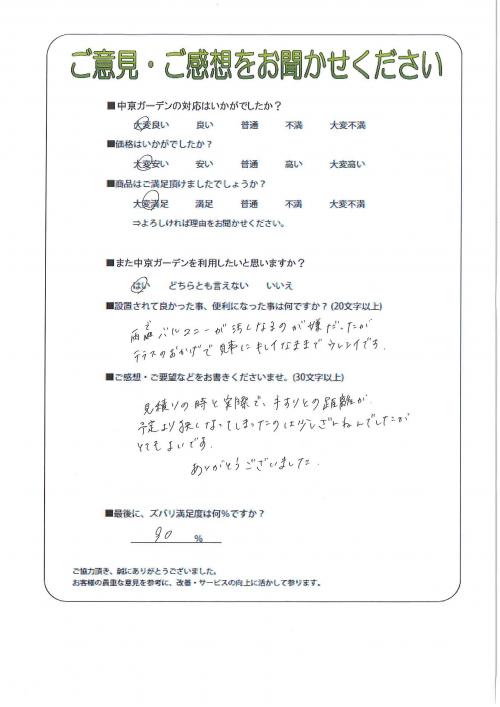 ご意見・ご感想をお聞かせください
■中京ガーデンの対応はいかがでしたか?
大変良い 良い 普通 不満 大変不満
■価格はいかがでしたか?
大変安い 安い 普通 高い 大変高い
■商品はご満足頂けましたでしょうか?
大変満足 満足 普通 不満 大変不満
⇒よろしければ理由をお聞かせください。
■また中京ガーデンを利用したいと思いますか?
はい どちらとも言えない いいえ
■設置されて良かった事、便利になった事は何ですか?(20文字以上)
雨でバルコニーが汚くなるのが嫌だったが
テラスのおかげで見事にキレイなままでウレシイです。
■ご感想・ご要望などをお書きくださいませ。(30文字以上)
見積りの時と実際で、手すりとの距離が
予定より狭くなってしまったのは少しざんねんでしたが
とてもよいです。
ありがとうございました。
■最後に、ズバリ満足度は何%ですか?
90 %
ご協力頂き、誠にありがとうございました。
お客様の貴重な意見を参考に、改善・サービスの向上に活かして参ります。